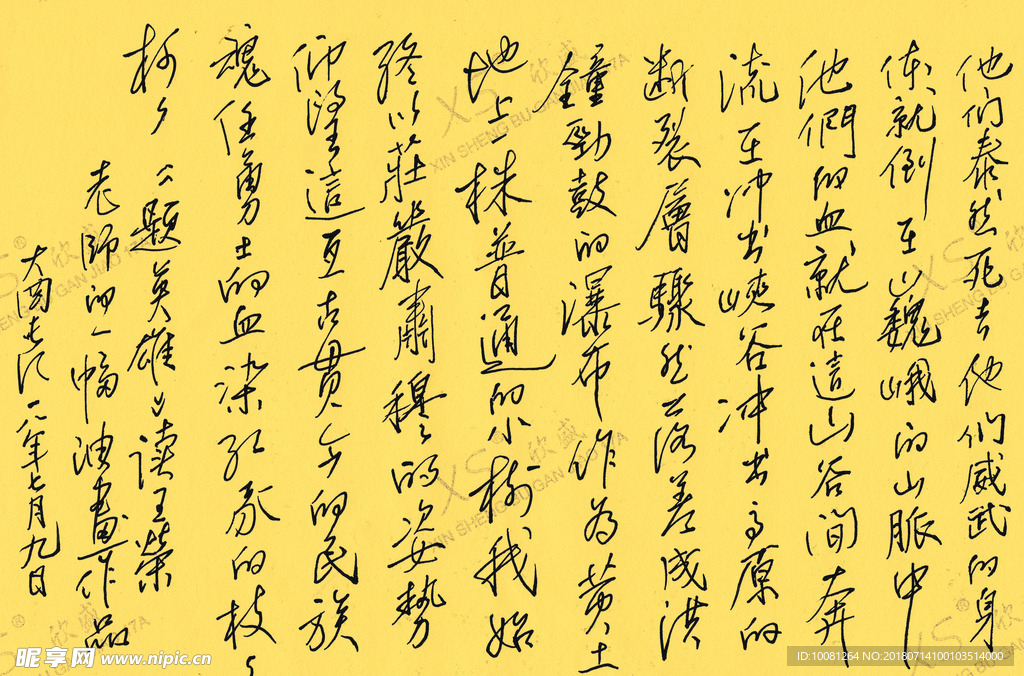 他们泰然死去他们威武的身
体就倒在巍峨的山脈中
他們的血就在這山谷间奔
流在冲出峽谷冲出高原的
断裂層驟然落差成洪
鐘勁鼓的瀑布作為黄土
地上株普通的小樹我始
終以莊嚴肅穆的姿勢
仰望這亘古贯今的民族
魂任勇士的血染红我的枝
題英雄读王荣
老師的一幅油畫作品
一八年七月九日
XS®欣盛
XIN SHENG BU GAN JIAO 77A
昵享网 www.nipic.cn
ID:10081264 NO:20180714100103514000